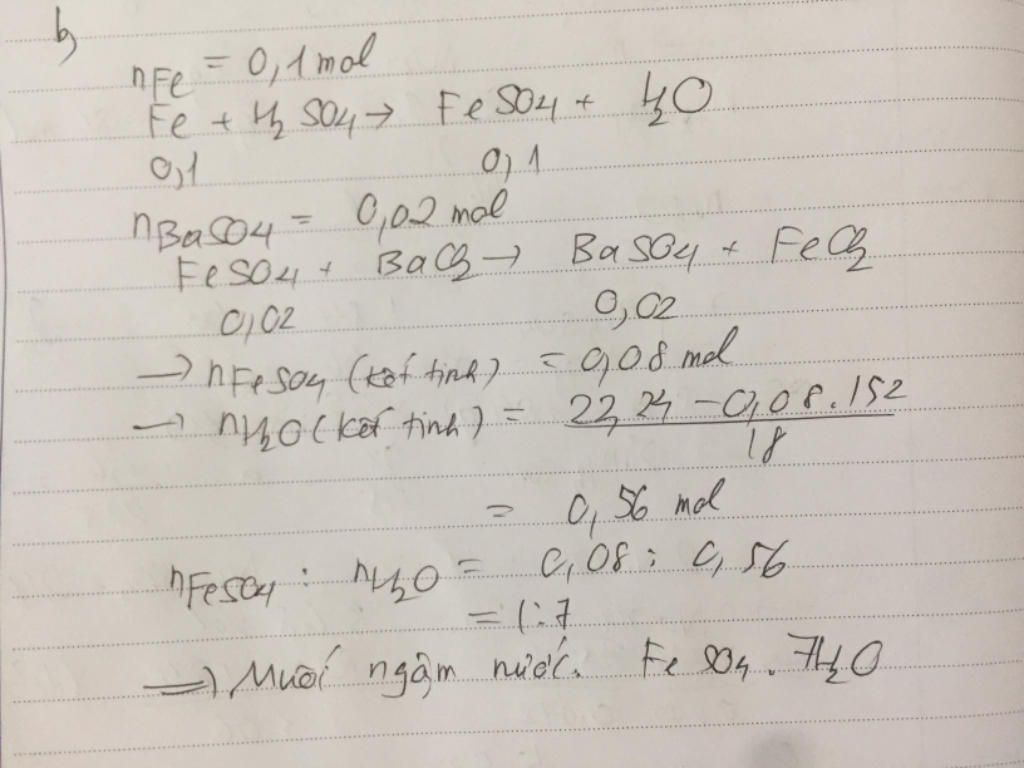 b)
nFe = 0,1 mol
Fe + H2SO4 → FeSO4 + H2O
0,1 0,1
nBaSO4 = 0,02 mol
FeSO4 + BaCl2 → BaSO4 + FeCl2
0,02 0,02
→ nFeSO4 (kết tinh) = 0,08 mol
→ nH2O (kết tinh) = 22,24 - 0,08.152
18
= 0,56 mol
nFeSO4 : nH2O = 0,08 : 0,56
= 1:7
⇒ Muối ngậm nước. FeSO4.7H2O